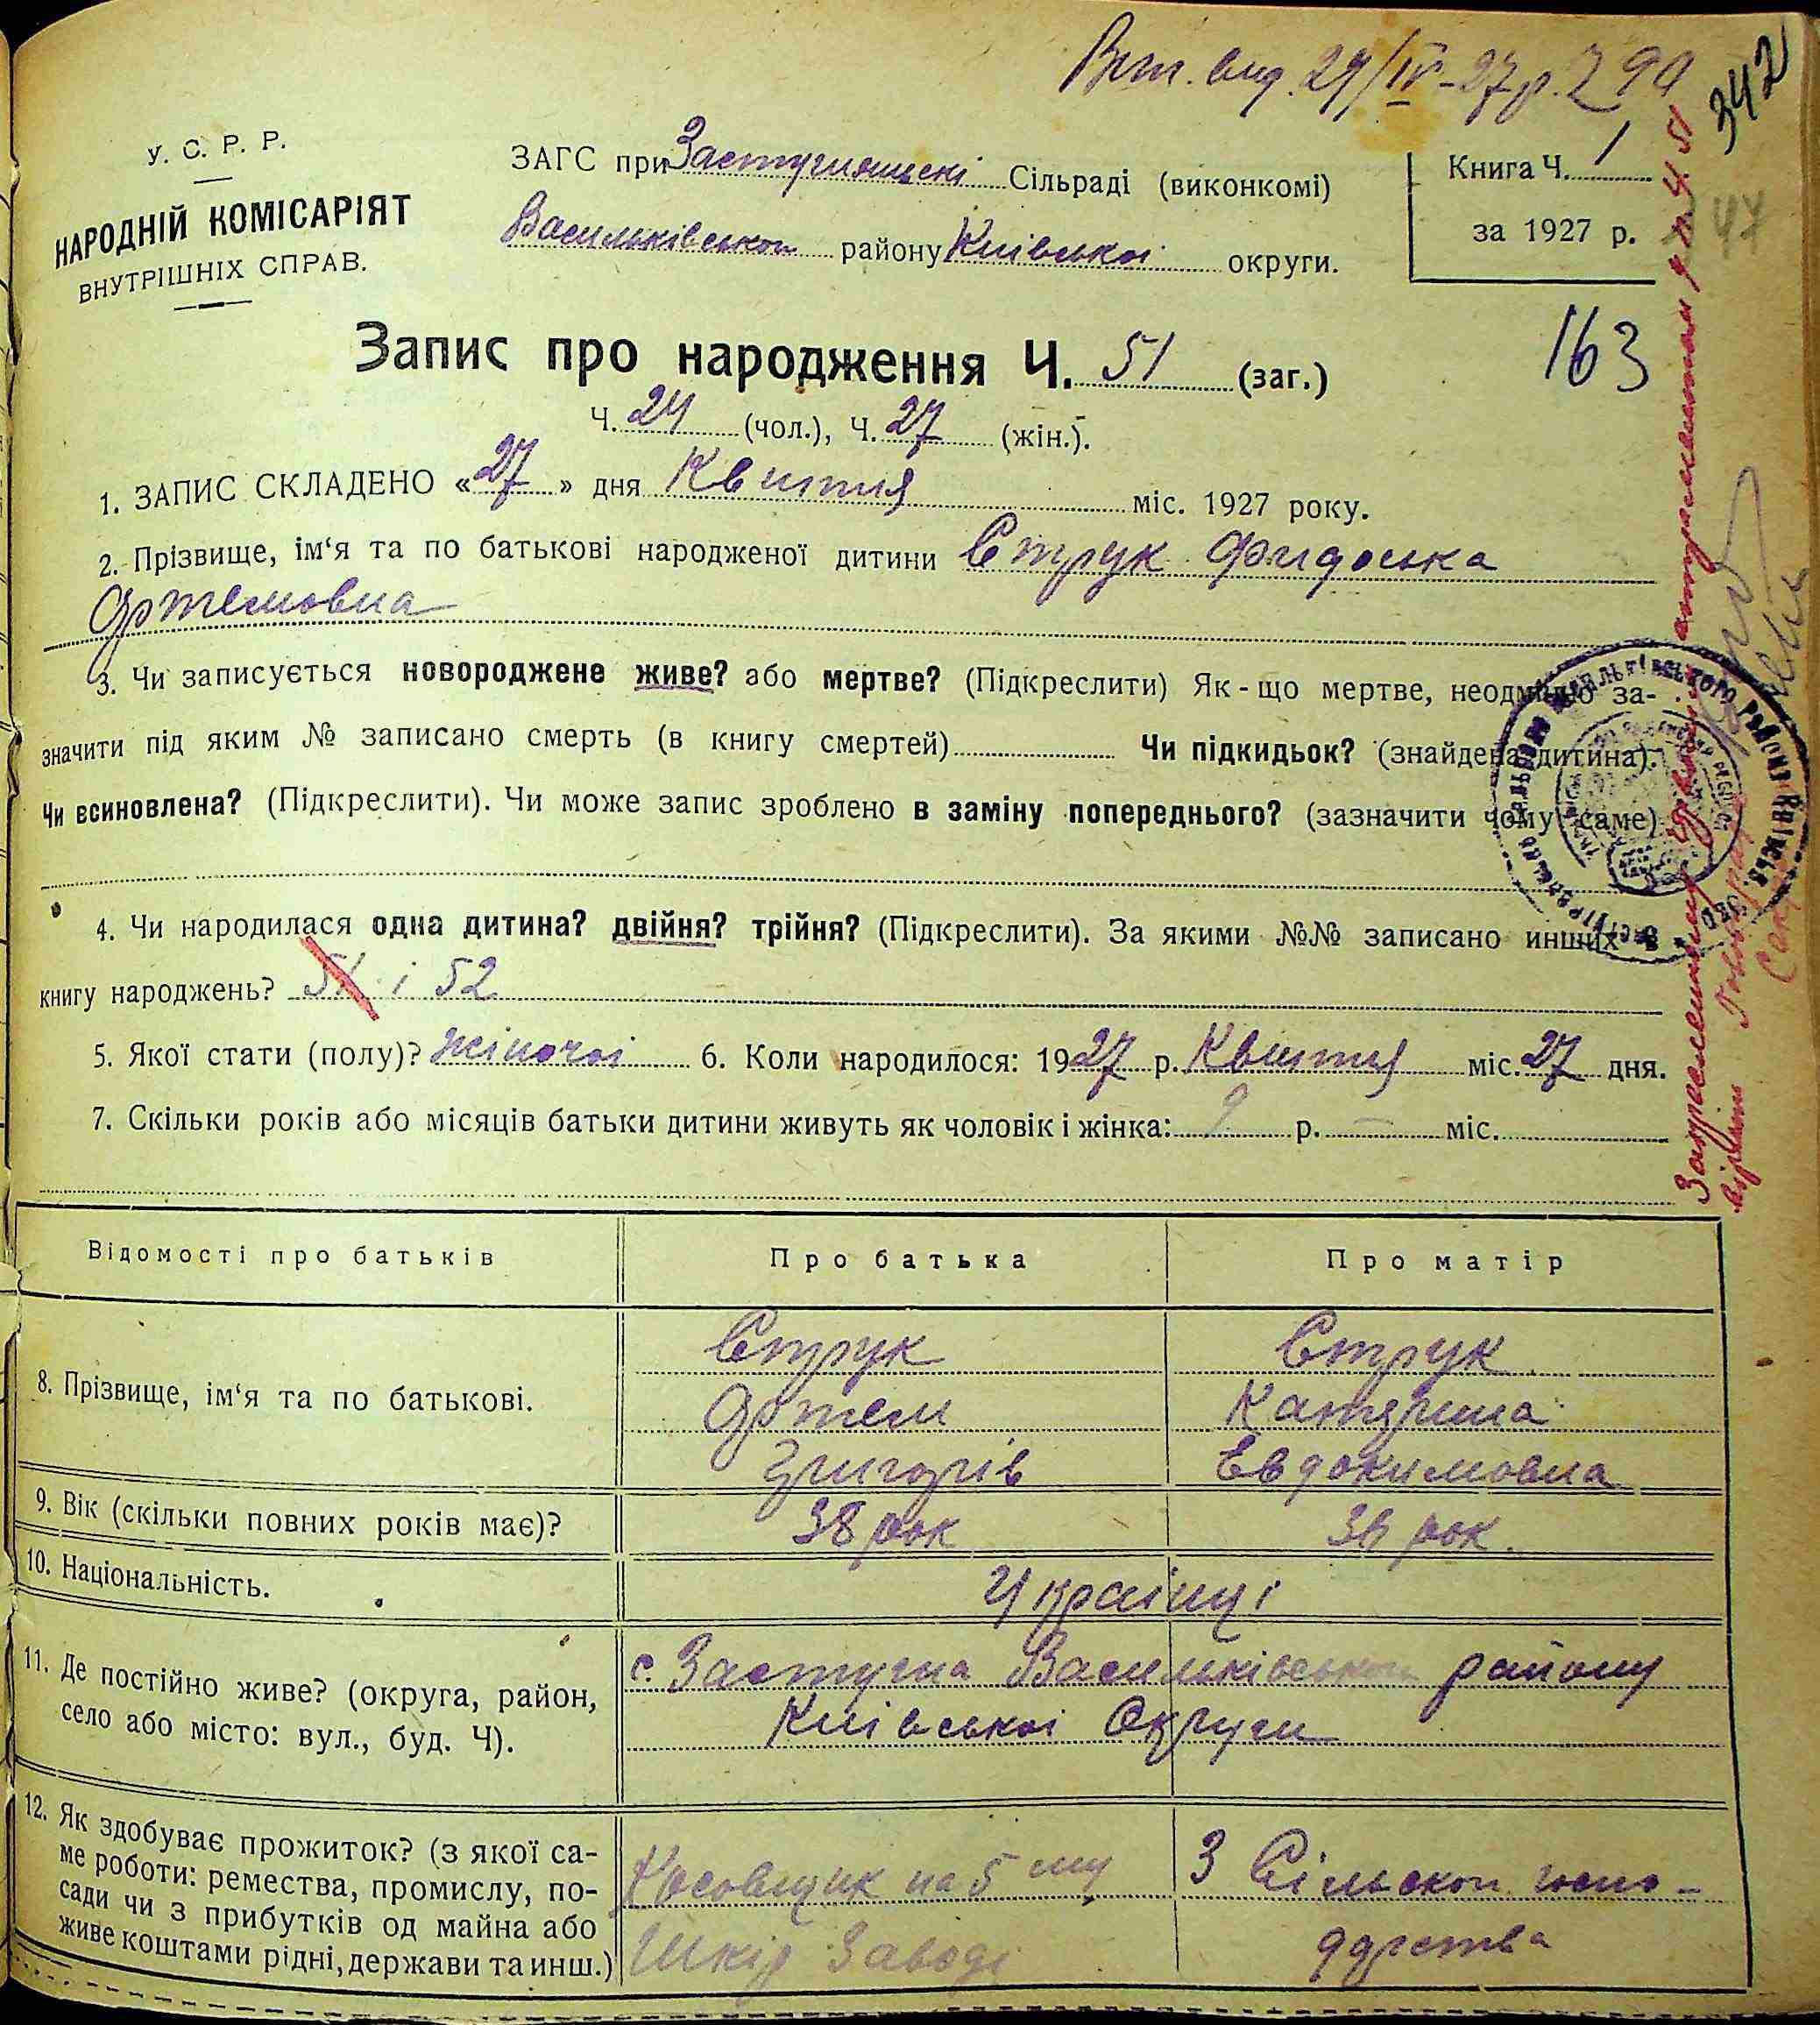 Вит. вид. 29/IV-27 р.
342
У. С. Р. Р.
НАРОДНІЙ КОМІСАРІЯТ
ВНУТРІШНІХ СПРАВ.
ЗАГС при Застугнянській Сільраді (виконкомі)
Васильківського району Київської округи.
Книга Ч. 1
за 1927 р.
44
163
Запис про народження Ч. 51 (заг.)
Ч. 24 (чол.), Ч. 27 (жін.).
1. ЗАПИС СКЛАДЕНО «27» дня Квітня міс. 1927 року.
2. Прізвище, ім‘я та по батькові народженої дитини Струк Фидоська
Артемовна
3. Чи записується новороджене живе? або мертве? (Підкреслити) Як-що мертве, неодмінно за-
значити під яким № записано смерть (в книгу смертей) Чи підкидьок? (знайдена дитина).
Чи всиновлена? (Підкреслити). Чи може запис зроблено в заміну попереднього? (зазначити чому саме)
4. Чи народилася одна дитина? двійня? трійня? (Підкреслити). За якими №№ записано инших в
книгу народжень? 51 і 52
5. Якої стати (полу)? жіночої 6. Коли народилося: 1927 р. Квітня міс. 27 дня.
7. Скільки років або місяців батьки дитини живуть як чоловік і жінка: 9 р. — міс.
Відомості про батьків Про батька Про матір
8. Прізвище, ім‘я та по батькові.
Струк Струк
Артем Катерина
Григорів Евдокимовна
9. Вік (скільки повних років має)? 38 рок 36 рок.
10. Національність. Українці
11. Де постійно живе? (округа, район,
село або місто: вул., буд. Ч).
с. Застугна Васильківського району
Київської Округи
12. Як здобуває прожиток? (з якої са-
ме роботи: ремества, промислу, по-
сади чи з прибутків од майна або
живе коштами рідні, держави та инш.)
на 5 му
Шкір Заводі
З Сільского госпо-
дарства